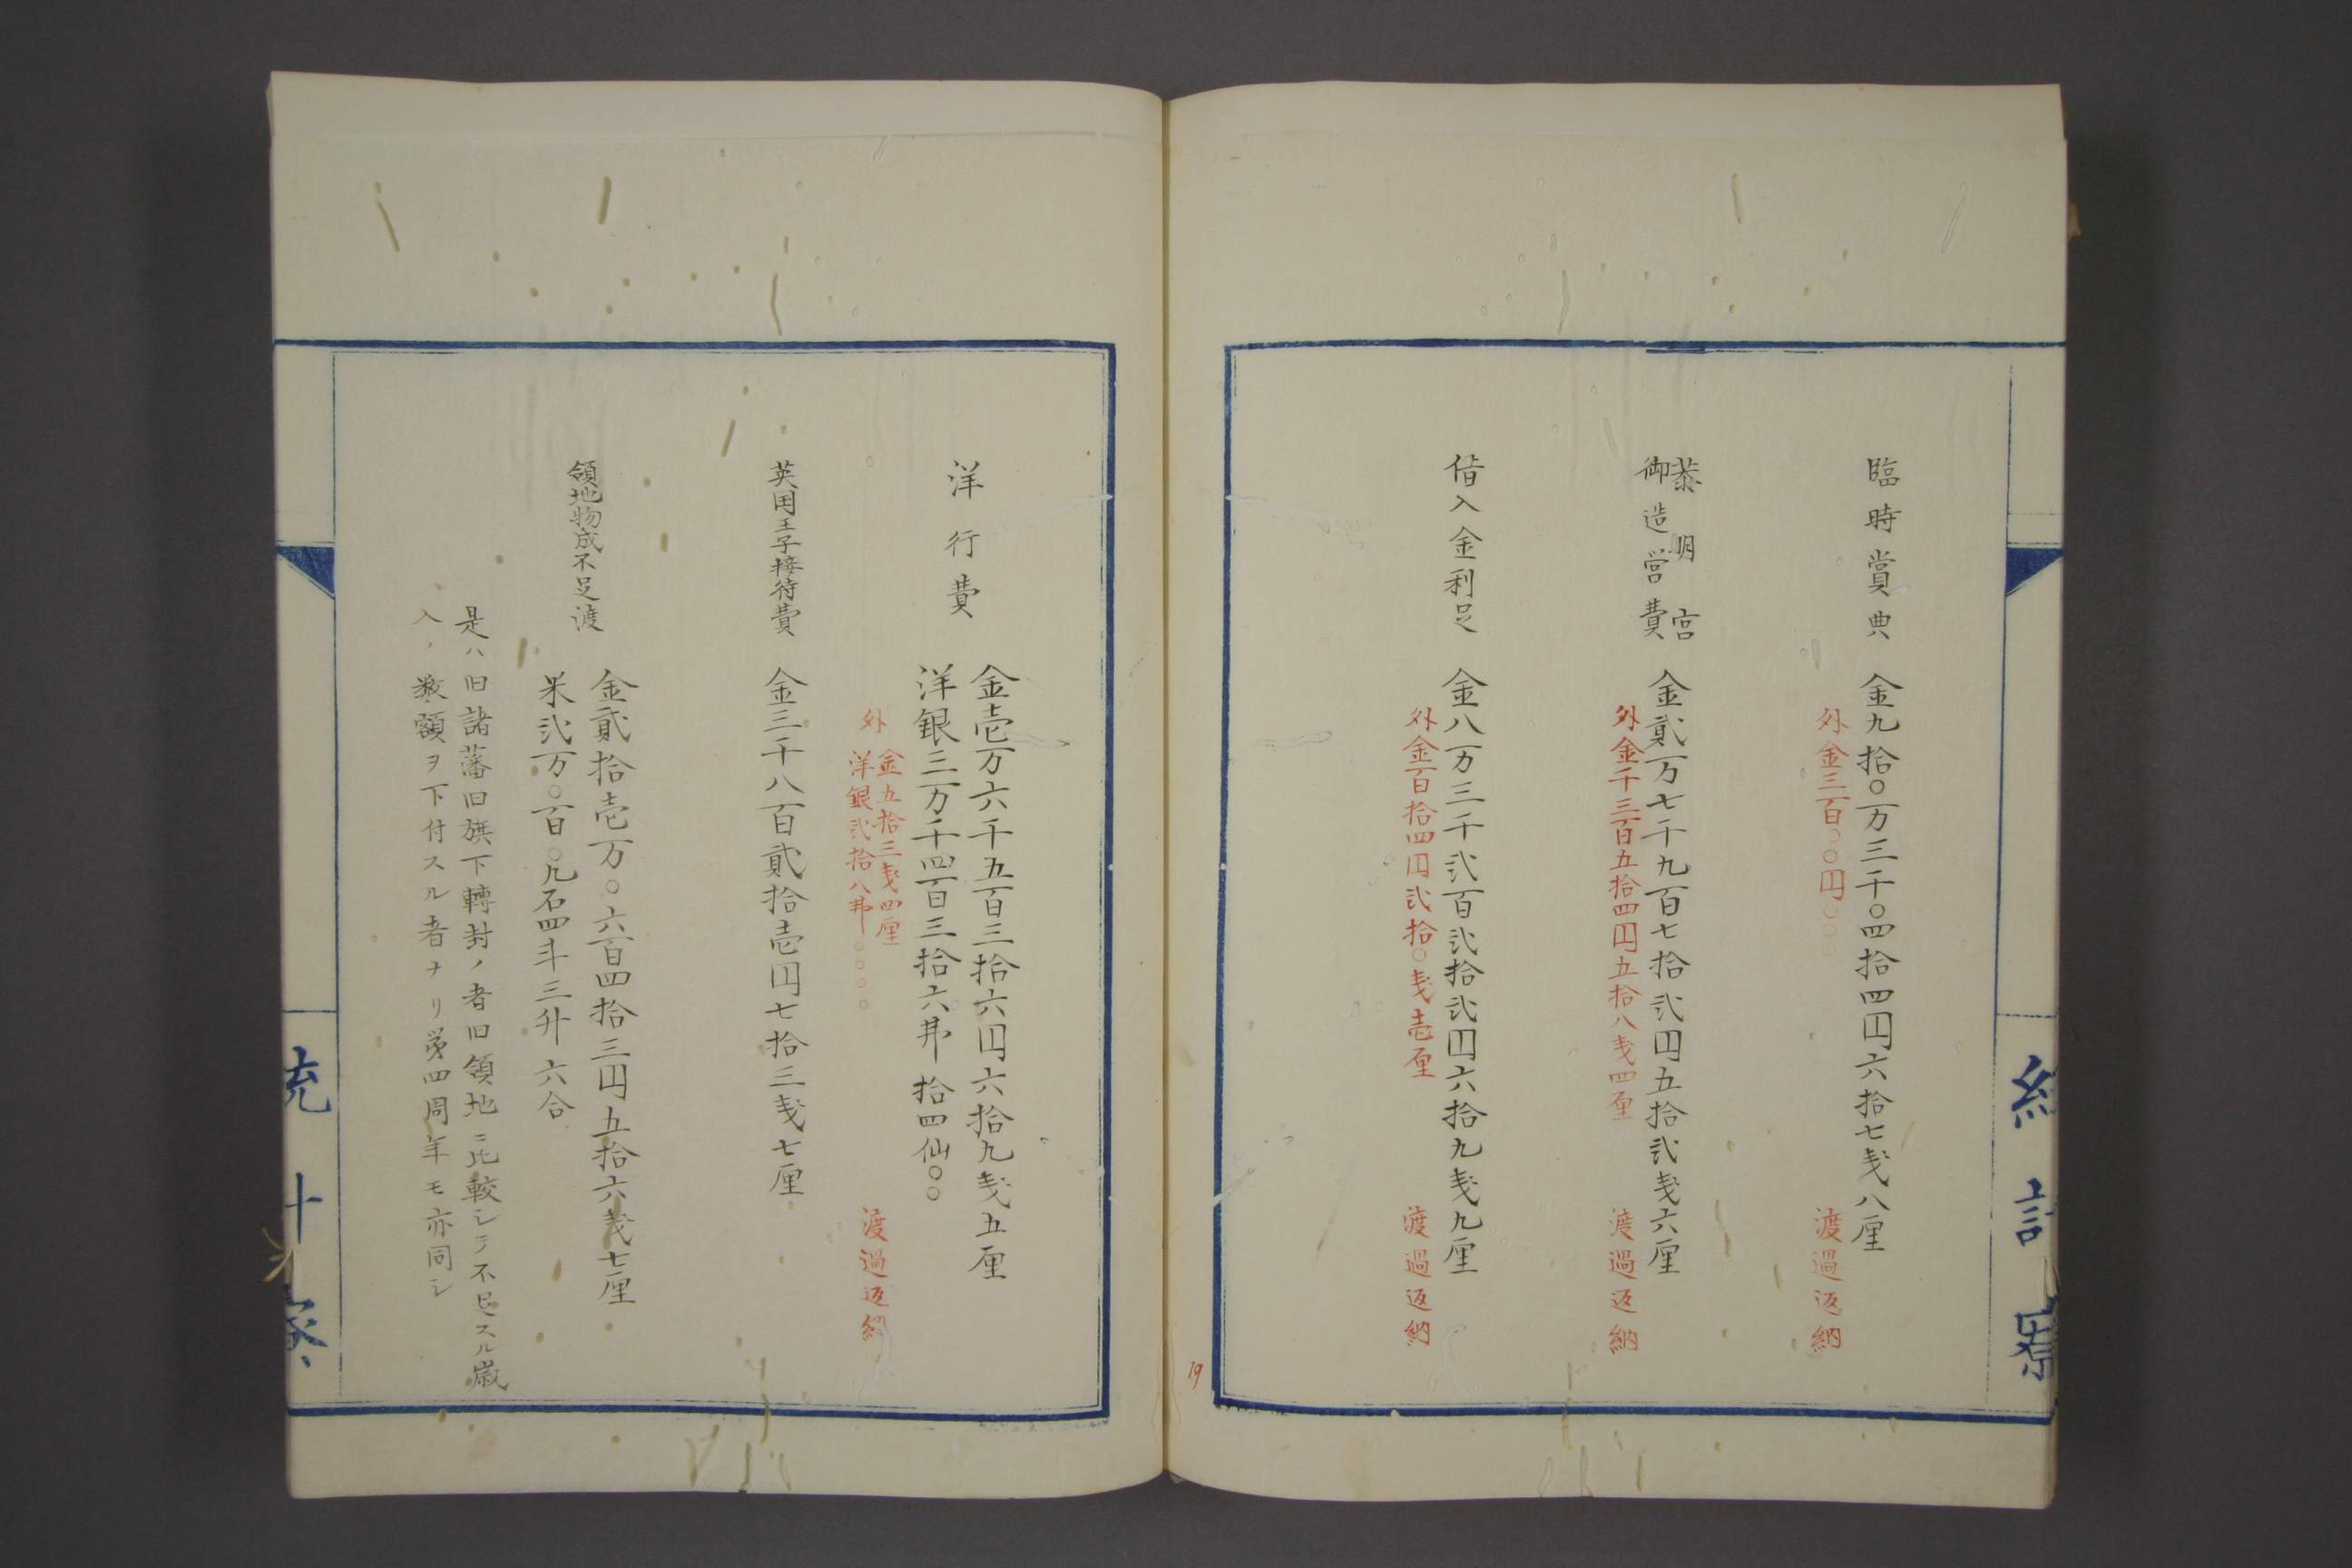 臨時賞典
金九拾〇万三千〇四拾四円六拾七戔八厘
外金三百〇〇円〇〇〇
渡過返納
恭明宮
御造営費
金貳万七千九百七拾弐円五拾弐戔六厘
外金千三百五拾四円五拾八戔四厘
渡過返納
借入金利足
金八万三千弐百弐拾弐円六拾九戔九厘
外金百拾四円弐拾〇戔壱厘
渡過返納
19
洋行費
金壱万六千五百三拾六円六拾九戔五厘
洋銀三万千四百三拾六弗拾四仙〇〇
外
金五拾三戔四厘
洋銀弐拾八弗〇〇〇〇
渡過返納
英国王子接待費
金三千八百貳拾壱円七拾三戔七厘
領地物成不足渡
金貳拾壱万〇六百四拾三円五拾六戔七厘
米弐万〇百〇九石四斗三升六合
是ハ旧諸藩旧旗下轉封ノ者旧領地ニ比較シテ不足スル歳
入ノ数額ヲ下付スル者ナリ第四周年モ亦同シ